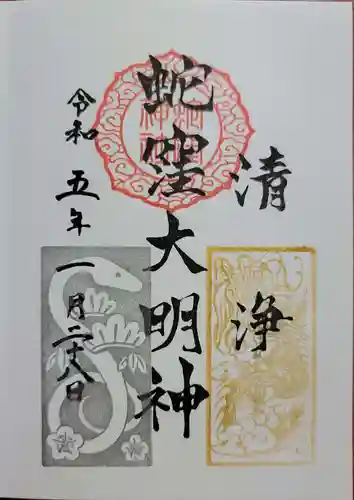 清浄
蛇窪大明神
令和五年一月二十八日